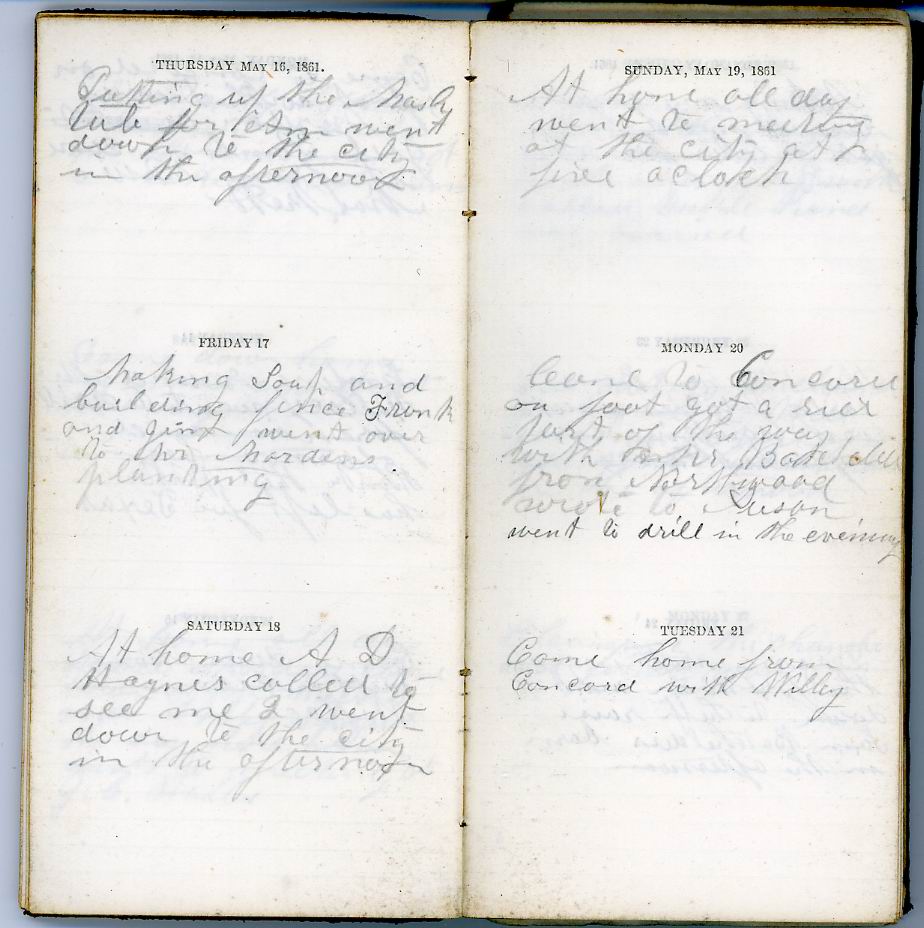 THURSDAY MAY 16, 1861.
Putting up the Mash
tub for
down to the city
in the afternoon
FRIDAY 17
Making Soap and
building fence Frank
and went over
to Mr Mardens
planting
SATURDAY 18
At home A D
Haynes called to
see me I went
down to the city
in the afternoon
SUNDAY, MAY 19, 1861
At home all day
went to meeting
at the city at
five oclock
MONDAY 20
Come to Concord
on foot got a
part of the way
with
from Northwood
wrote to Susan
went to drill in the evening
TUESDAY 21
Come home from
Concord with Willey